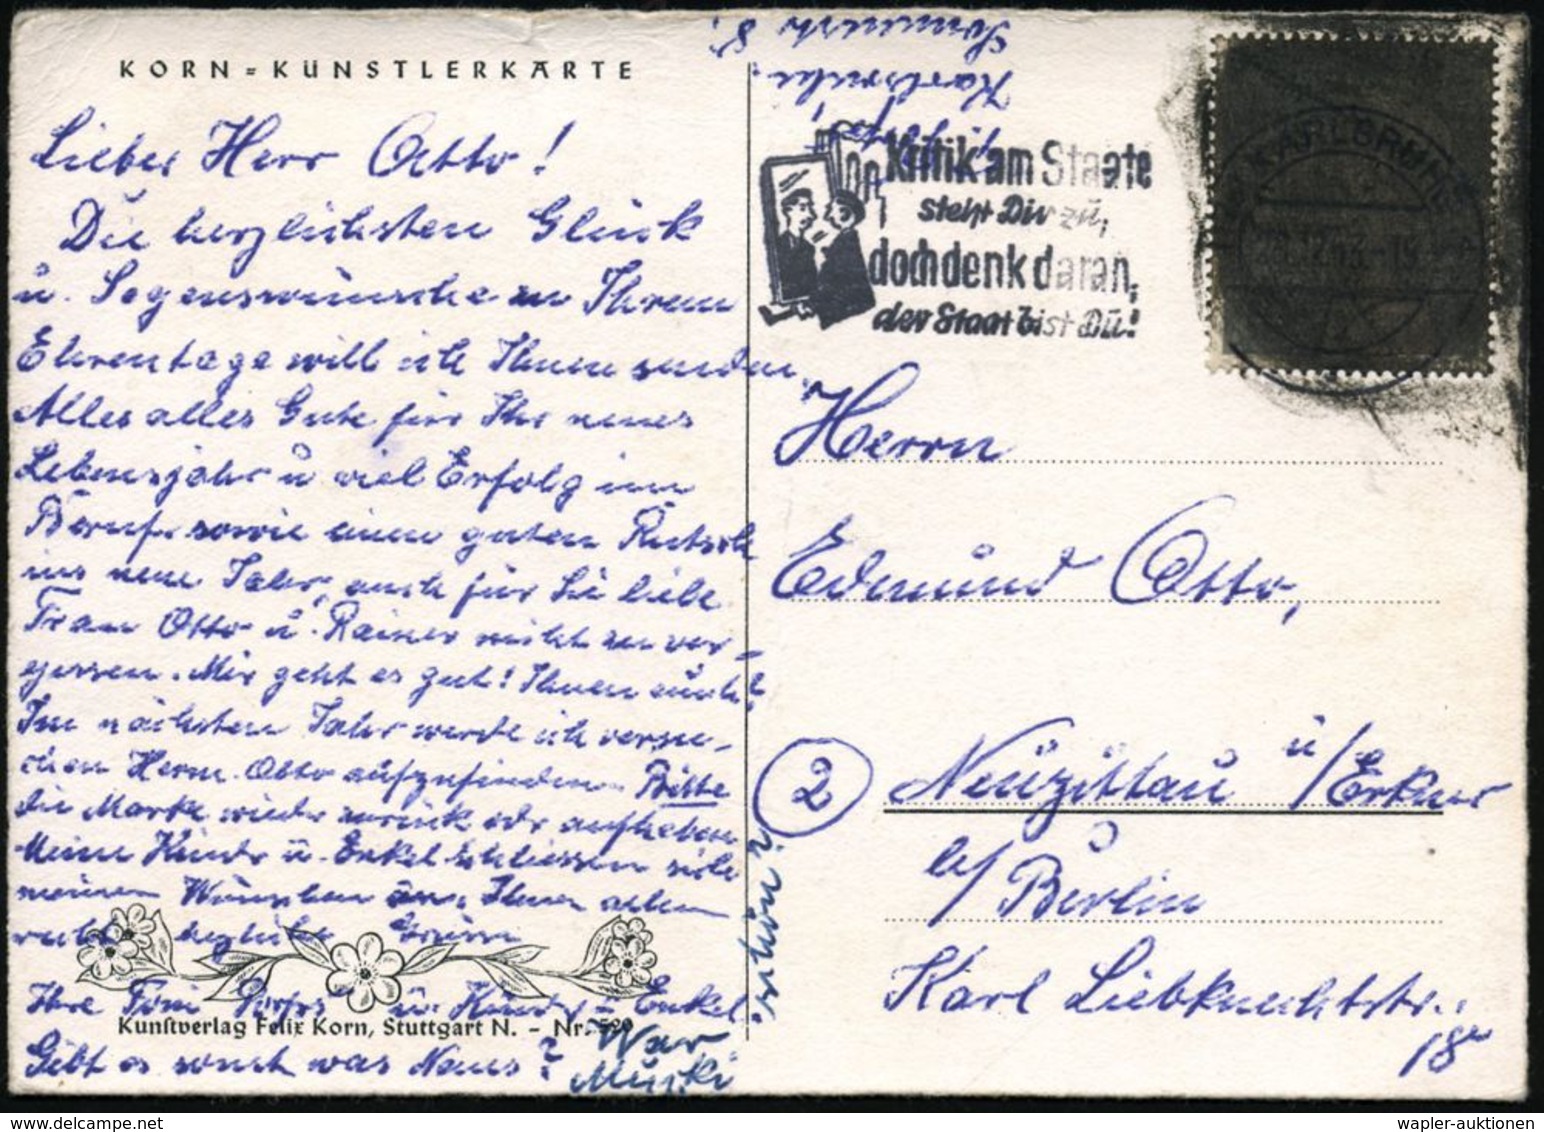 KORN-KÜNSTLERKARTE
Lieber Herr Otto!
Die herzlichsten Glück
u. Segenswünsche zu Ihrem
Ehrentage will ich Ihnen senden.
Alles alles Gute für Ihr neues
Lebensjahr u viel Erfolg im
Beruf. sowie einen guten Rutsch
ins neue Jahr, auch für Sie liebe
Frau Otto u. Rainer nicht zu ver-
gessen. Mir geht es gut! Ihnen auch?
Im nächsten Jahr werde ich versu-
chen Herrn Otto aufzufinden Bitte
die Marke wieder zurück odr aufheben
Meine Kinder u. Enkel schliessen sich
meinen Wünschen an. Ihnen allen
recht herzliche Grüsse
Ihre u. Kinder u Enkel
Kunstverlag Felix Korn, Stuttgart N. - Nr. 529
Gibt es sonst was Neues?
War
Mucki
schon?
Karlsruhe
8.
Kritik am Staate
steht Dir zu,
doch denk daran,
der Staat bist Du!
KARLSRUHE
12.53-19
Herrn
Edmund Otto,
2
Neuzittau ü/Erkner
b/Berlin
Karl Liebknechtstr.
18
wapler-auktionen